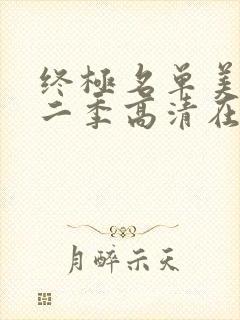 终極名单美
二季高清在
月醉示天